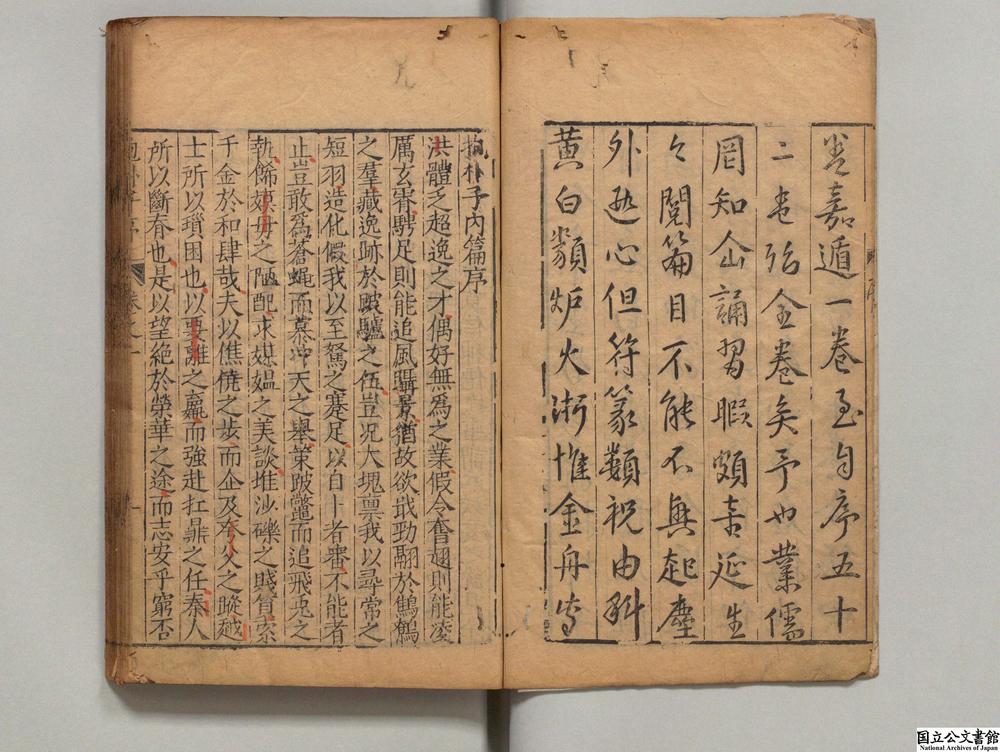 嘉遁一卷至自序五十
二卷殆全卷矣予也業儒
罔知命誦習暇頗喜延生
々閱篇目不能不興起塵
外遊心但符篆類祝由科
黃白類炉火術惟金丹
抱朴子內篇序
洪體乏超逸之才偶好無爲之業假令奮翅則能凌
厲玄霄騁足則能追風躡景猶故欲戢勁翮於鷦鷃
之羣藏逸跡於跛驢之伍豈况大塊稟我以尋常之
短羽造化假我以至駑之蹇足以自卜者審不能者
止豈敢爲蒼蠅而慕冲天之舉策跛鼈而追飛兎之
軌飾嫫母之陋配求媒媼之美談堆沙礫之賤質索
千金於和肆哉夫以僬僥之步而企及夸父之蹤越
士所以瑣困也以要離之羸而強赴扛鼎之任秦人
所以斷春也是以望絕於榮華之途而志安乎窮否
抱朴子序 卷之一 一
国立公文書館
National Archives of Japan